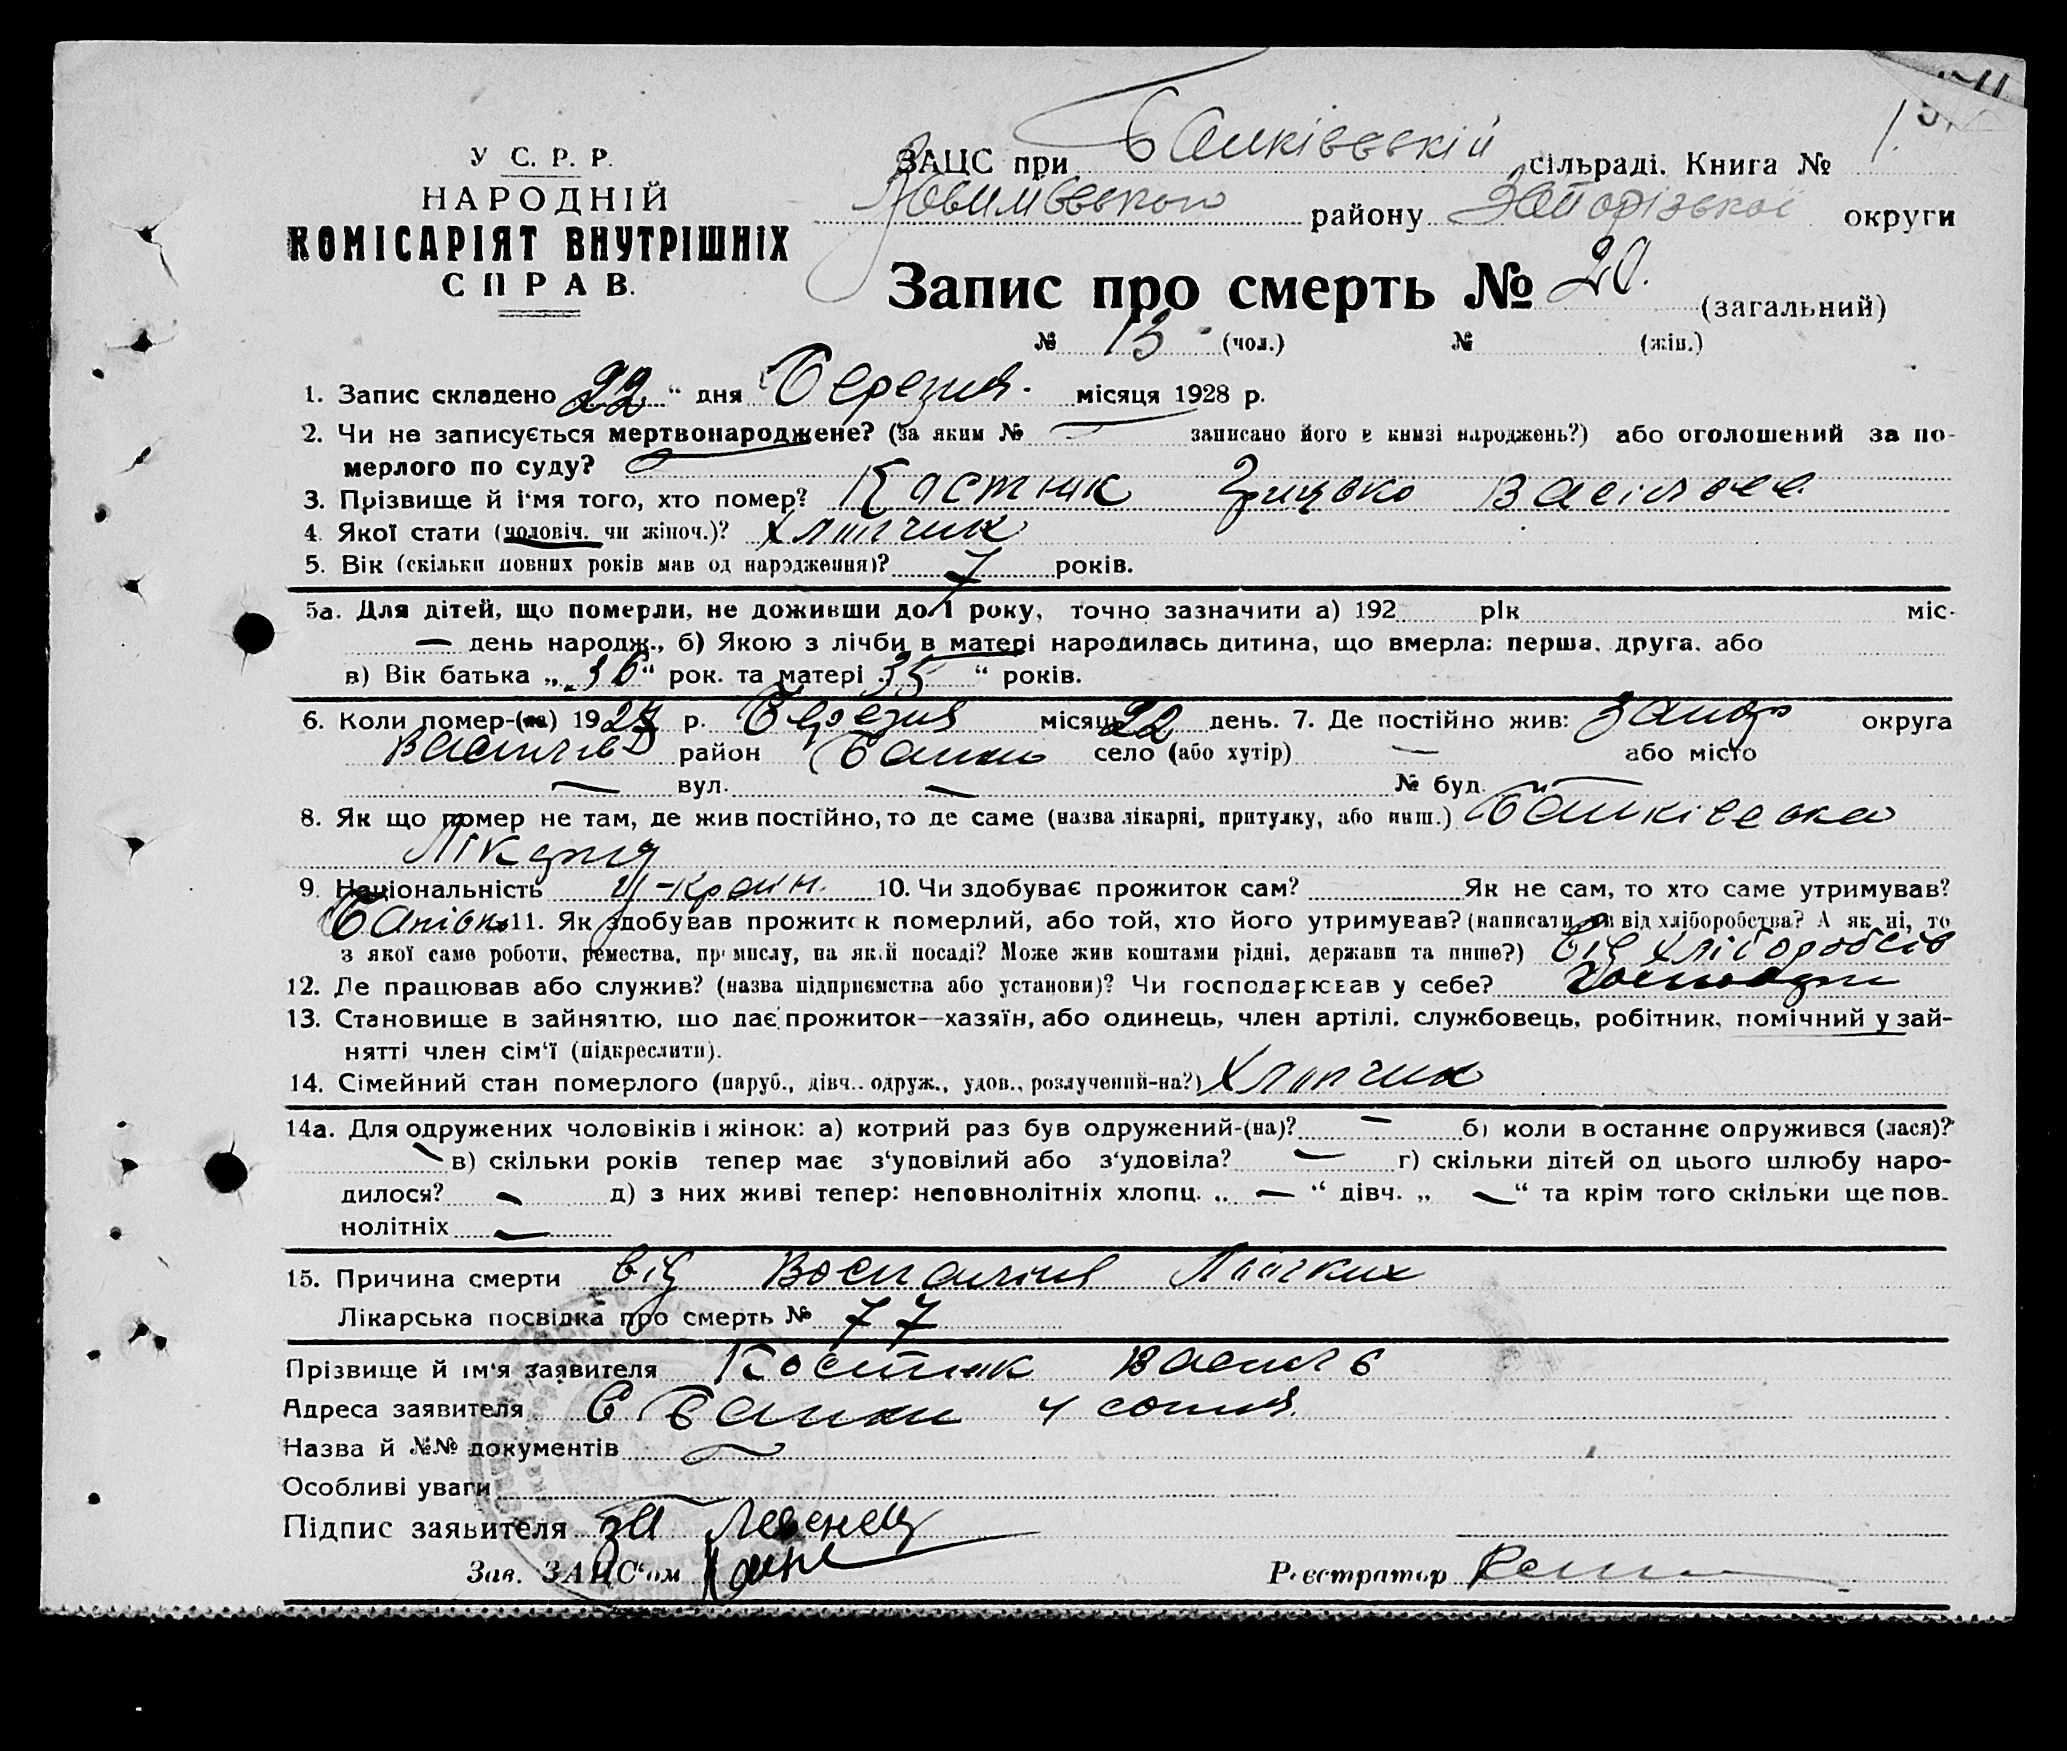 У С. Р. Р.
НАРОДНІЙ
КОМІСАРІЯТ ВНУТРІШНІХ
СПРАВ.
ЗАЦС при сільраді. Книга № 1.
району Запорізької округи
Запис про смерть № 20. (загальний)
№ 13 (чол.) № (жін.)
1. Запис складено 22 “ дня Березня. місяця 1928 р.
2. Чи не записується мертвонароджене? (за яким № — записано його в книзі народжень?) або оголошений за по-
мерлого по суду?
3. Прізвище й ім'я того, хто помер? Костюк Грицько
4. Якої стати (чоловіч. чи жіноч.)? Хлопчик
5. Вік (скільки повних років мав од народження)? 7 років.
5а. Для дітей, що померли, не доживши до 1 року, точно зазначити а) 192 рік міс.
— день народж., б) Якою з лічби в матері народилась дитина, що вмерла: перша, друга, або
в) Вік батька „ 36 “ рок. та матері 35 “ років.
6. Коли помер-(ла) 192 р. Березня місяць 22 день. 7. Де постійно жив: округа
район село (або хутір) — або місто
— вул. — № буд.
8. Як що помер не там, де жив постійно, то де саме (назва лікарні, притулку, або инш.)
Лікарня
9. Національність Україн. 10. Чи здобуває прожиток сам? Як не сам, то хто саме утримував?
11. Як здобував прожиток померлий, або той, хто його утримував? (написати, чи від хліборобства? А як ні, то
з якої саме роботи, ремества, промислу, на якій посаді? Може жив коштами рідні, держави та инше?) Від
12. Де працював або служив? (назва підприємства або установи)? Чи господарював у себе?
13. Становище в зайняттю, що дає прожиток—хазяїн, або одинець, член артілі, службовець, робітник, помічний у зай-
нятті член сім'ї (підкреслити).
14. Сімейний стан померлого (паруб., дівч., одруж., удов., розлучений-на?) Хлопчик
14а. Для одружених чоловіків і жінок: а) котрий раз був одружений-(на)? — б) коли востаннє одружився (лася)?
— в) скільки років тепер має з'удовілий або з'удовіла? — г) скільки дітей од цього шлюбу наро-
дилося? — д) з них живі тепер: неповнолітніх хлопц. „ — “ дівч. „ — “ та крім того скільки ще пов-
нолітніх —
15. Причина смерти від
Лікарська посвідка про смерть № 77
Прізвище й ім'я заявителя Костюк Василь
Адреса заявителя С 4 сотня.
Назва й №№ документів
Особливі уваги
Підпис заявителя за
Зав. ЗАЦС'ом
Реєстратор